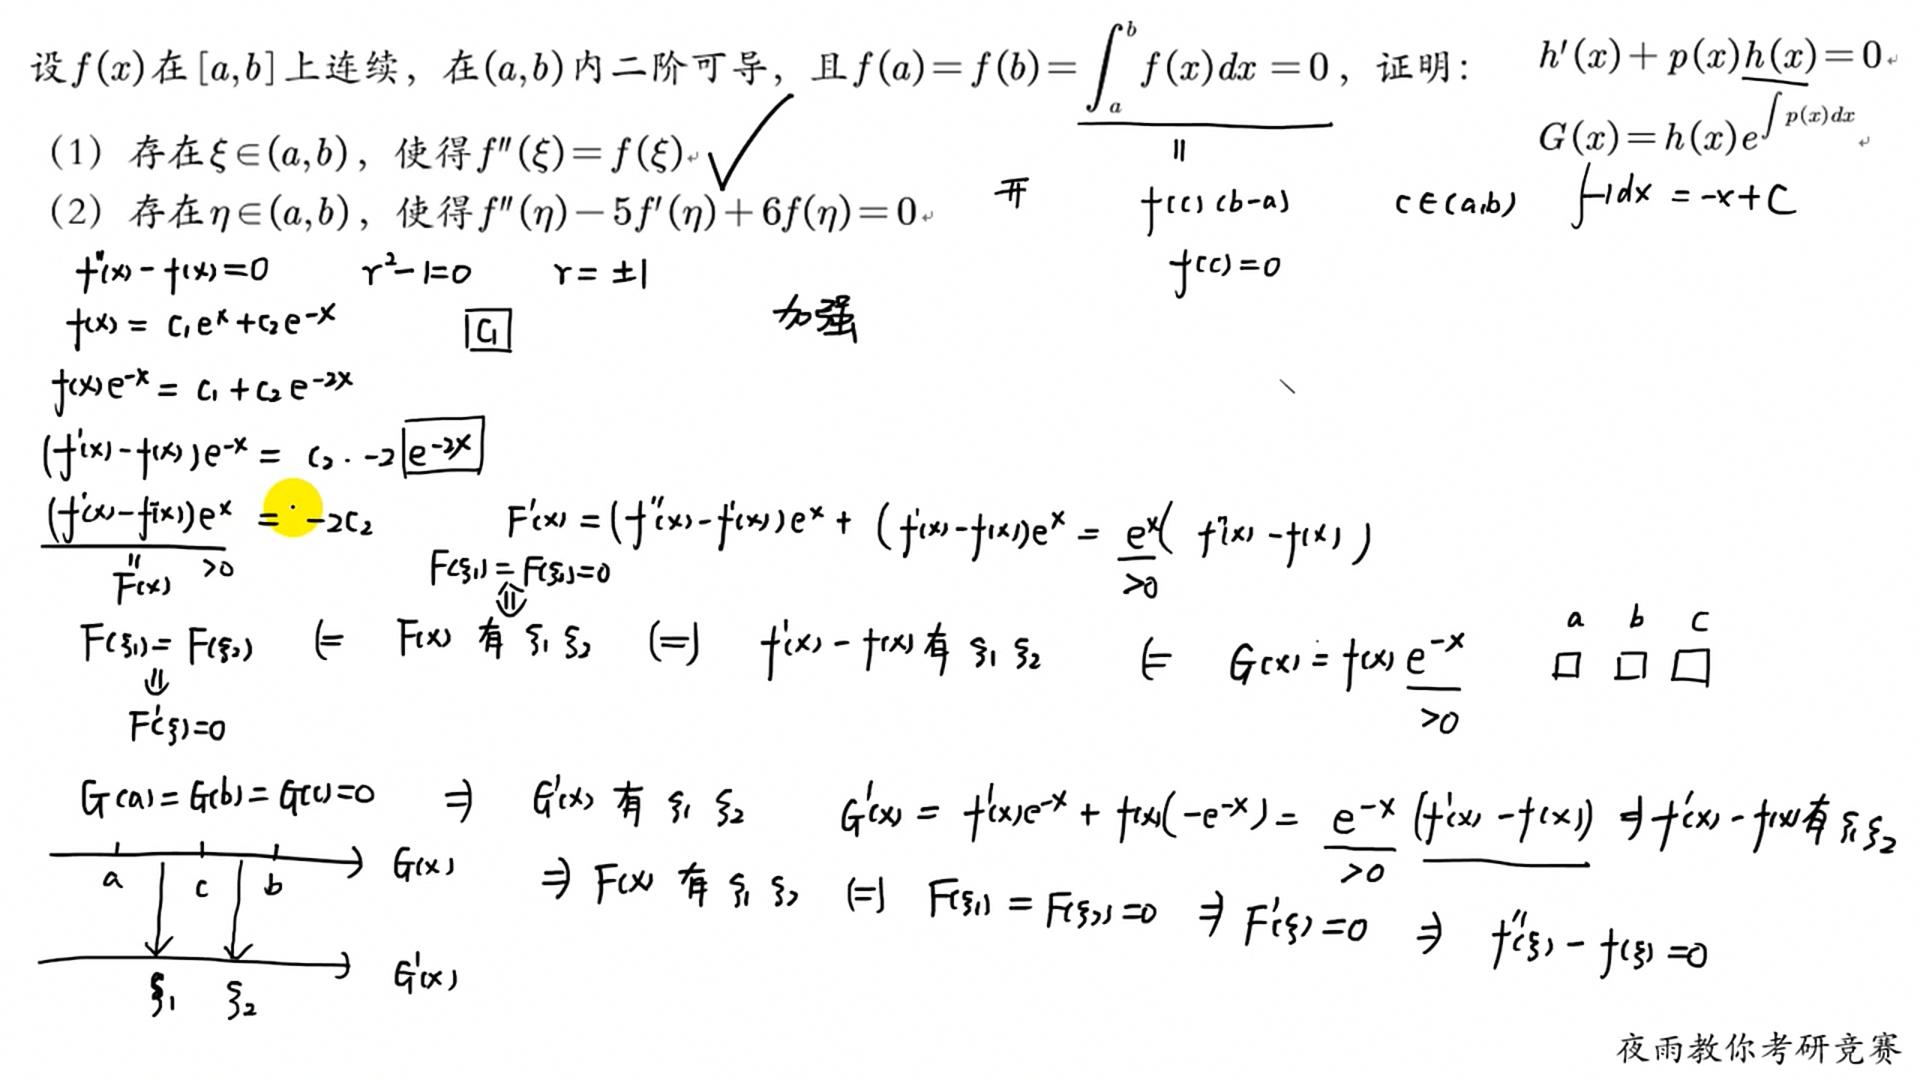 设f(x)在[a,b]上连续，在(a,b)内二阶可导，且f(a)=f(b)=∫_a^b f(x)dx=0，证明：
（1）存在ξ∈(a,b)，使得f″(ξ)=f(ξ)
（2）存在η∈(a,b)，使得f″(η)−5f′(η)+6f(η)=0
h′(x)+p(x)h(x)=0
G(x)=h(x)e^{∫p(x)dx}
开
= f(c)(b-a) c∈(a,b) ∫-1dx = -x+C
f(c)=0
f″(x)-f(x)=0 r²-1=0 r=±1
f(x)= c₁e^x+c₂e^{-x} C₁ 加强
f(x)e^{-x} = c₁+c₂e^{-2x}
(f′(x)-f(x))e^{-x} = c₂·-2 e^{-2x}
(f′(x)-f(x))e^x = -2c₂ F′(x)=(f″(x)-f′(x))e^x+(f′(x)-f(x))e^x = e^x(f″(x)-f(x))
= F(x) >0 F(ξ₁)=F(ξ₂)=0 >0
F(ξ₁)=F(ξ₂) ⇐ F(x)有ξ₁ ξ₂ ⇔ f′(x)-f(x)有ξ₁ ξ₂ ⇐ G(x)=f(x)e^{-x} a b c
⇓ >0
F′(ξ)=0
G(a)=G(b)=G(c)=0 ⇒ G′(x)有ξ₁ ξ₂ G′(x)=f′(x)e^{-x}+f(x)(-e^{-x})=e^{-x}(f′(x)-f(x)) ⇒ f′(x)-f(x)有ξ₁ξ₂
>0
a c b G(x) ⇒ F(x)有ξ₁ ξ₂ ⇔ F(ξ₁)=F(ξ₂)=0 ⇒ F′(ξ)=0 ⇒ f″(ξ)-f(ξ)=0
ξ₁ ξ₂ G′(x)
夜雨教你考研竞赛